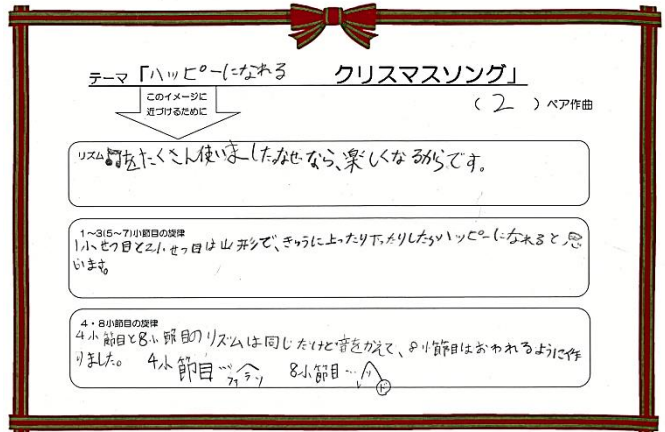 テーマ「ハッピーになれる クリスマスソング」
このイメージに
近づけるために
(2)ペア作曲
リズム ♫をたくさん使いましたなぜなら、楽しくなるからです。
1~3(5~7)小節目の旋律
1小せつ目と2小せつ目は山形で、きゅうに上ったり下ったりしたらハッピーになれると思
います。
4・8小節目の旋律
4小節目と8小節目のリズムは同じだけど音をかえて、8小節目はおわれるように作
りました。 4小節目…ファラソ 8小節目…ソド